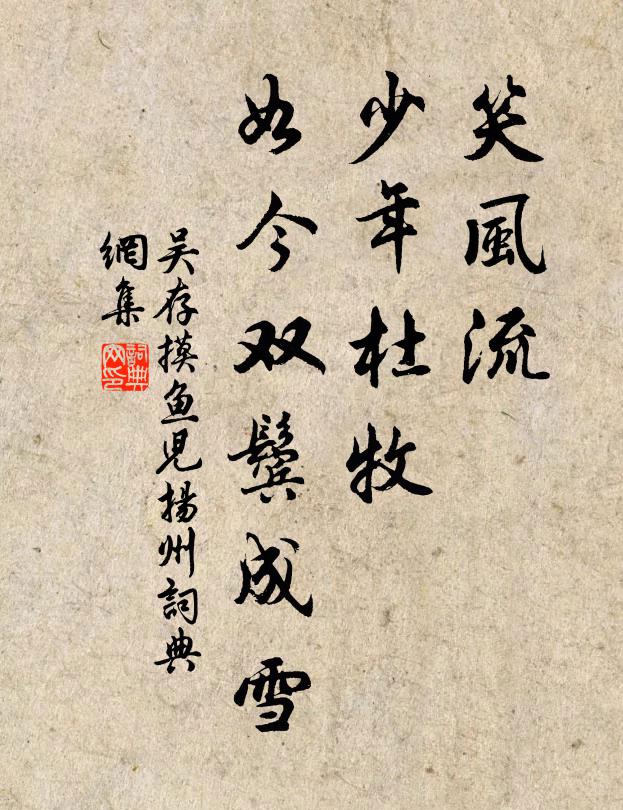 笑風流
少年杜牧
如今双鬓成雪
吴存摸鱼児揚州詞典
網集
詞典
网印